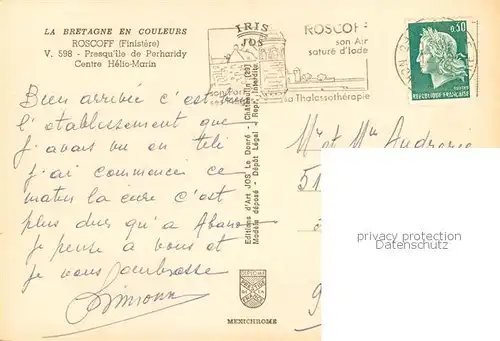 LA BRETAGNE EN COULEURS
ROSCOFF (Finistère)
V. 598 - Presqu'île de Perharidy
Centre Hélio-Marin
IRIS
JOS
ROSCOFF
son Air
saturé d'Iode
son Port
sa Thalassothérapie
0,30
POSTES
REPUBLIQUE FRANÇAISE
Bien arrivée c'est
l'établissement que
j'avais vu en télé
j'ai commencé ce
matin la cure c'est
plus dur qu'à Abano
je pense à vous et
je vous embrasse
Simone
Editions d'Art JOS Le Doaré - Châteaulin (29)
Modèle déposé - Dépôt Légal / Repr. Interdite
Mr et Mme
51
9
privacy protection
Datenschutz
MEXICHROME